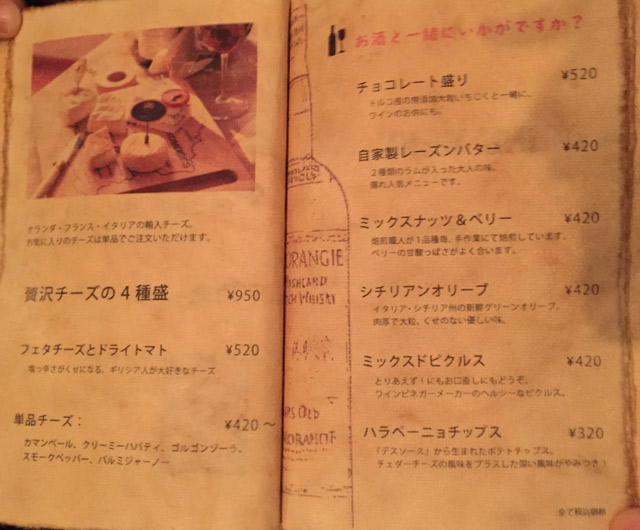 オランダ・フランス・イタリアの輸入チーズ。
お気に入りのチーズは単品でご注文いただけます。
贅沢チーズの4種盛 ¥950
フェタチーズとドライトマト ¥520
塩っ辛さがくせになる、ギリシア人が大好きなチーズ
単品チーズ： ¥420～
カマンベール、クリーミーハバティ、ゴルゴンゾーラ、
スモークペッパー、パルミジャーノ
お酒と一緒にいかがですか？
チョコレート盛り ¥520
トルコ産の無添加大粒いちじくと一緒に、
ワインのお供にも。
自家製レーズンバター ¥420
2種類のラムが入った大人の味。
隠れ人気メニューです。
ミックスナッツ＆ベリー ¥420
焙煎職人が1品種毎、手作業にて焙煎しています。
ベリーの甘酸っぱさがよく合います。
シチリアンオリーブ ¥420
イタリア・シチリア州の新鮮グリーンオリーブ。
肉厚で大粒、くせのない優しい味。
ミックスドピクルス ¥420
とりあえず！にもお口直しにもどうぞ。
ワインビネガーメーカーのヘルシーなピクルス。
ハラペーニョチップス ¥320
「デスソース」から生まれたポテトチップス。
チェダーチーズの風味をプラスした深い風味がやみつき！
全て税込価格
ORANGIE